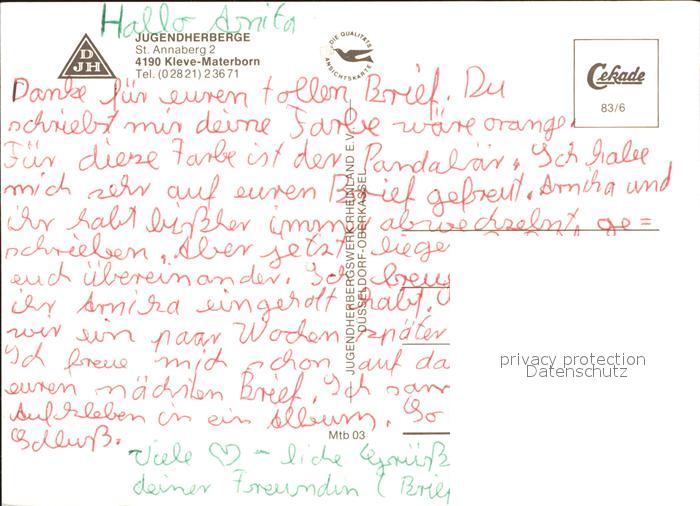 Hallo Anita
JUGENDHERBERGE
St. Annaberg 2
4190 Kleve-Materborn
Tel. (02821) 23671
DJH
DIE QUALITÄTS
ANSICHTSKARTE
Cekade
83/6
Danke für euren tollen Brief. Du
schriebst mir deine Farbe wäre orange.
Für diese Farbe ist der Pandabär. Ich habe
mich sehr auf euren Brief gefreut. Annika und
ihr habt bißher immer abwechzelnt, ge=
schrieben. Aber jetzt liege
euch übereinander. Ich
ihr Annika eingeholt habt.
wir ein paar Wochen später
Ich freue mich schon auf da
euren nächsten Brief. Ich sam
Aufkleben in ein Album. So
Schluß.
Viele ♡ - liche Grüß
deiner Freundin ( Brief
JUGENDHERBERGSWERK RHEINLAND E.V.
DÜSSELDORF-OBERKASSEL
Mtb 03
privacy protection
Datenschutz